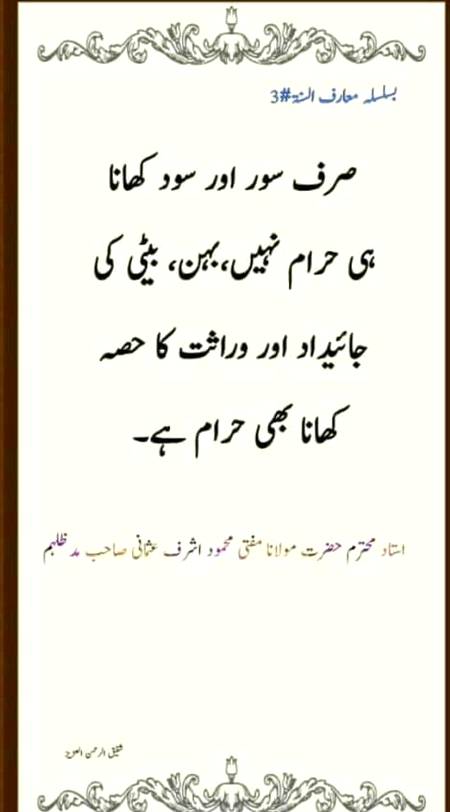 بسلسلہ معارف السنۃ#3
صرف سور اور سود کھانا
ہی حرام نہیں،بہن، بیٹی کی
جائیداد اور وراثت کا حصہ
کھانا بھی حرام ہے۔
استاد محترم حضرت مولانا مفتی محمود اشرف عثمانی صاحب مد ظلہم
شفیق الرحمن